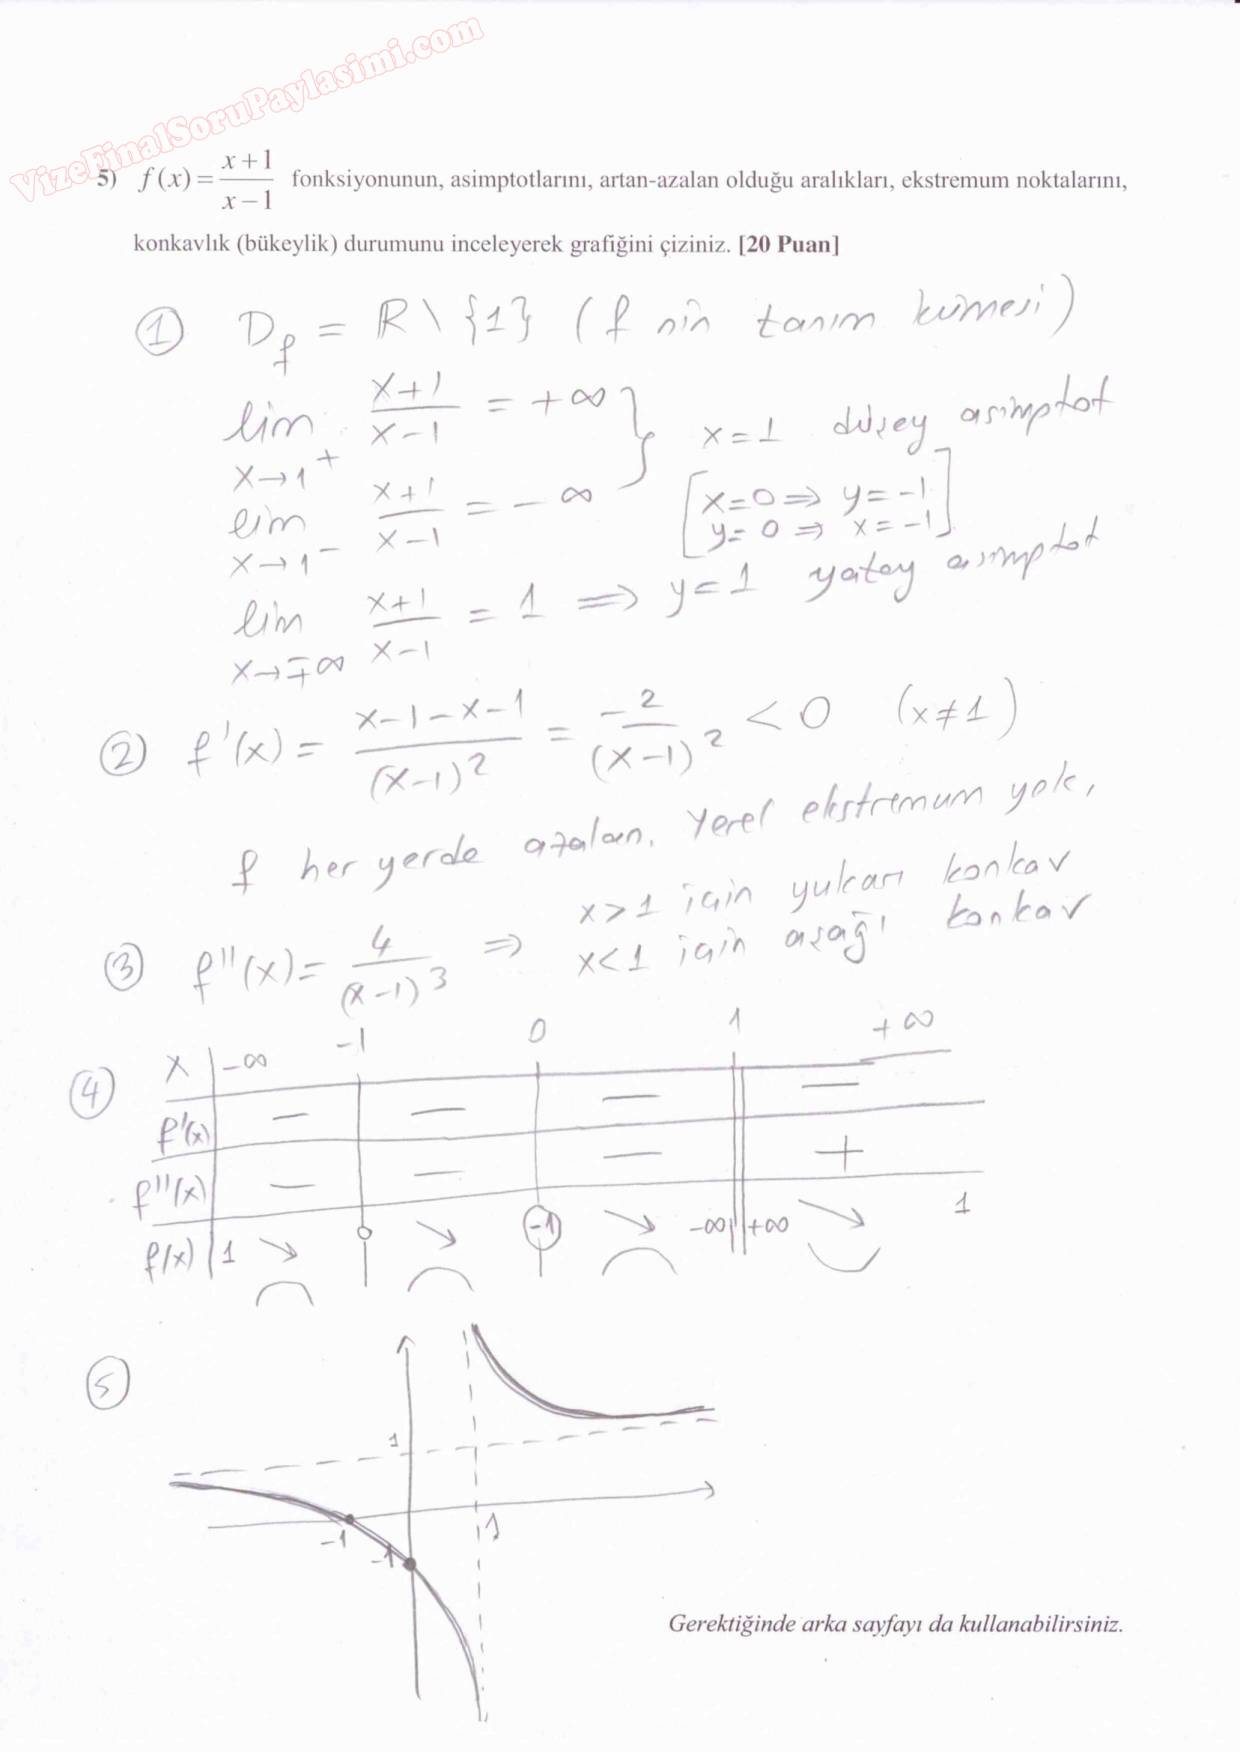 VizeFinalSoruPaylasimi.com
5) f(x) = (x+1)/(x−1) fonksiyonunun, asimptotlarını, artan-azalan olduğu aralıkları, ekstremum noktalarını,
konkavlık (bükeylik) durumunu inceleyerek grafiğini çiziniz. [20 Puan]
① D_f = R \ {1} (f nin tanım kümesi)
lim x→1⁺ (x+1)/(x−1) = +∞ } x=1 düşey asimptot
lim x→1⁻ (x+1)/(x−1) = −∞ [x=0 ⇒ y=−1
y=0 ⇒ x=−1]
lim x→∓∞ (x+1)/(x−1) = 1 ⇒ y=1 yatay asimptot
② f'(x) = (x−1−x−1)/(x−1)² = −2/(x−1)² < 0 (x≠1)
f her yerde azalan. Yerel ekstremum yok,
③ f''(x) = 4/(x−1)³ ⇒ x>1 için yukarı konkav
x<1 için aşağı konkav
④ x −∞ −1 0 1 +∞
f'(x) − − − −
f''(x) − − − +
f(x) 1 ↘ 0 ↘ −1 ↘ −∞ +∞ ↘ 1
⑤
1
−1
1
−1
Gerektiğinde arka sayfayı da kullanabilirsiniz.